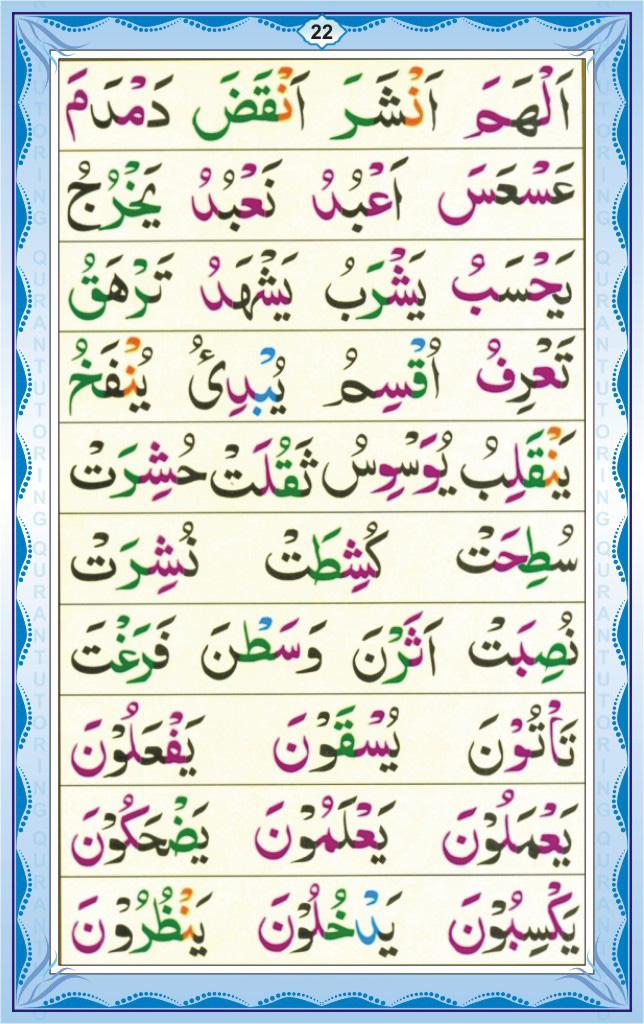 22
اَلْهَمَ اَنْشَرَ اَنْقَضَ دَمْدَمَ
عَسْعَسَ اَعْبُدُ نَعْبُدُ يَخْرُجُ
يَحْسَبُ يَشْرَبُ يَشْهَدُ تَرْهَقُ
تَعْرِفُ اُقْسِمُ يُبْدِئُ يُنْفَخُ
يَنْقَلِبُ يُوَسْوِسُ ثَقُلَتْ حُشِرَتْ
سُطِحَتْ كُشِطَتْ نُشِرَتْ
نُصِبَتْ اَثَرْنَ وَسَطْنَ فَرَغْتَ
تَاْتُوْنَ يُسْقَوْنَ يَفْعَلُوْنَ
يَعْمَلُوْنَ يَعْلَمُوْنَ يَضْحَكُوْنَ
يَكْسِبُوْنَ يَدْخُلُوْنَ يَنْظُرُوْنَ
QURAN TUTORING QURAN TUTORING
QURAN TUTORING QURAN TUTORING